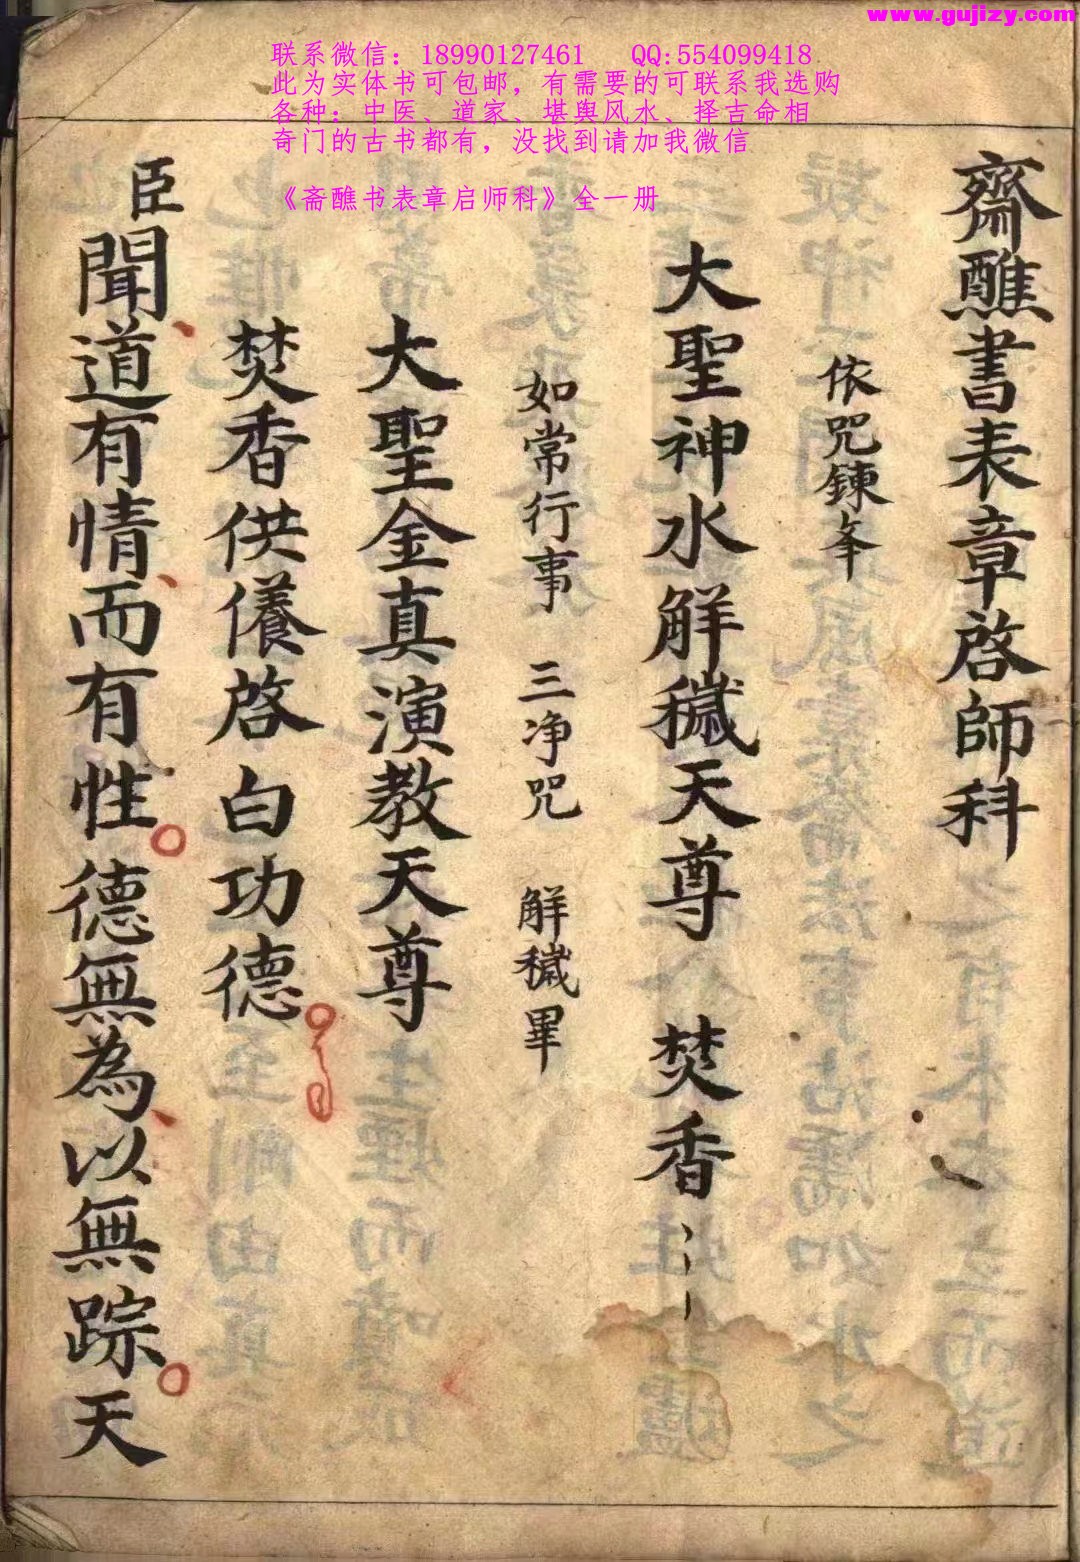 www.gujizy.com
联系微信：18990127461 QQ:554099418
此为实体书可包邮，有需要的可联系我选购
各种：中医、道家、堪舆风水、择吉命相
奇门的古书都有，没找到请加我微信
《斋醮书表章启师科》全一册
齋醮書表章啓師科
依咒鍊筆
大聖神水解穢天尊 焚香
如常行事 三净咒 解穢畢
大聖金真演教天尊
焚香供養啓白功德
臣聞道有情而有性德無為以無踪天